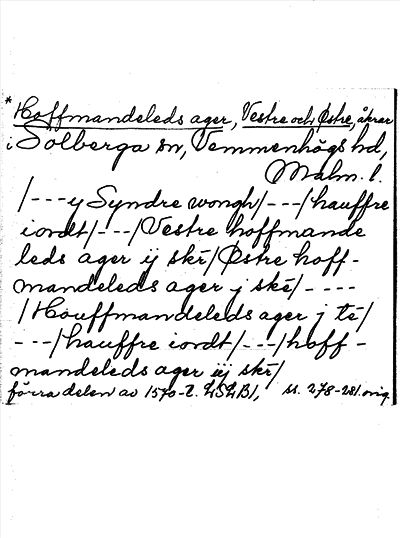 *Hoffmandeleds ager, Vestre och Østre, åkrar
i Solberga sn, Vemmenhögs hd,
Malm. l.
/---y Syndre wongh/---/hauffre
iordt/---/Vestre hoffmande
leds ager ij skē/Østre hoff-
mandeleds ager j skē/----
/Houffmandeleds ager j tē/
---/hauffre iordt/---/hoff-
mandeleds ager iij skē/
förra delen av 1570-t. LSLB1, ss. 278-281. orig.